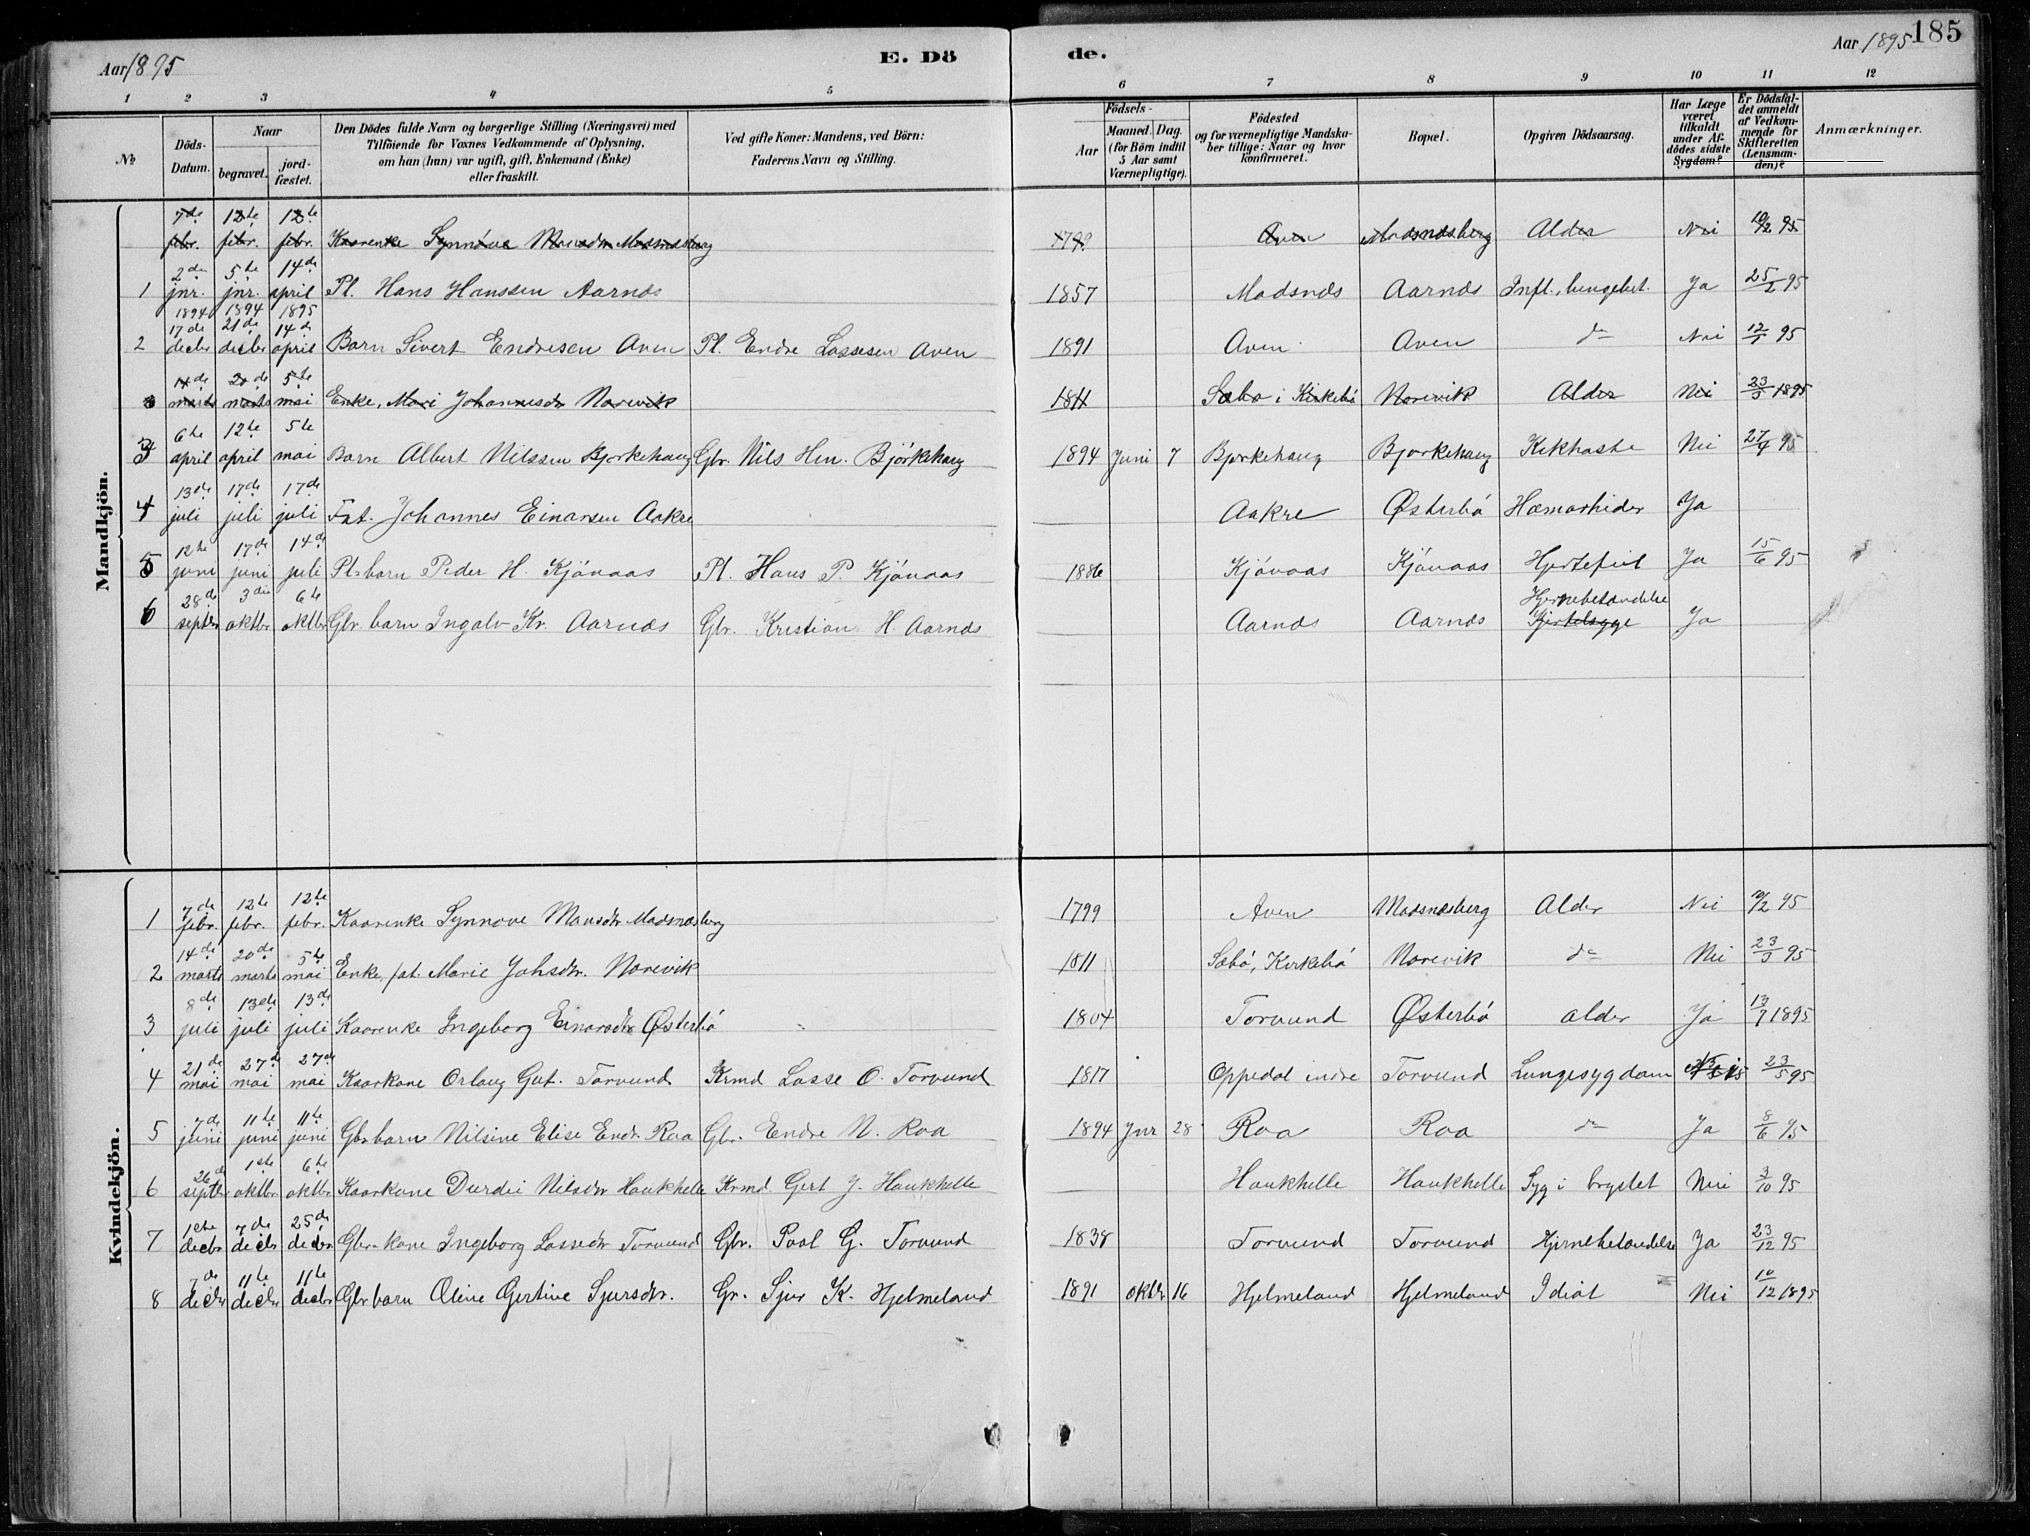 Aar 1895 E. Dö de. Aar 1895 185
1 2 3 4 5 6 7 8 9 10 11 12
No
Döds-Datum.
Naar
begravet.
jord-fæstet.
Den Dödes fulde Navn og borgerlige Stilling (Næringsvei) med
Tilföiende for Voxnes Vedkommende af Oplysning,
om han (hun) var ugift, gift, Enkemand (Enke)
eller fraskilt.
Ved gifte Koner: Mandens, ved Börn:
Faderens Navn og Stilling.
Födsels-
Aar
Maaned. Dag.
(for Börn indtil
5 Aar samt
Værnepligtige).
Födested
og for værnepligtige Mandska-
ber tillige: Naar og hvor
konfirmeret.
Bopæl.
Opgiven Dödsaarsag.
Har Læge
været
tilkaldt
under Af-
dödes sidste
Sygdom?
Er Dödsfal-
det anmeldt
af Vedkom-
mende for
Skifteretten
(Lensman-
den)?
Anmærkninger.
Mandkjön.
7de febr. 12te febr. 12te febr. Kaarenke Synnöve Mansdr Madsnæsberg 1799 Aven Madsnæsberg Alder Nei 10/2 95
1 2den jnr. 5te jnr. 14de april Pl. Hans Hanssen Aarnæs 1857 Madsnæs Aarnæs Infl., lungebet. Ja 25/2 95
1894 1894 1895
2 17de decbr 21de decbr 14de april Barn Sivert Endresen Aven Pl. Endre Lassesen Aven 1891 Aven Aven do Nei 12/1 95
3 14de marts 20de marts 5te mai Enke, Mari Johannesdr Norevik 1811 Sæbø i Kirkebø Norevik Alder Nei 23/3 1895
3 6te april 12te april 5te mai Barn Albert Nilssen Bjørkehaug Gbr. Nils Hen. Bjørkehaug 1894 Juni 7 Bjørkehaug Bjørkehaug Kikhoste Nei 27/4 95
4 13de juli 17de juli 17de juli Fat. Johannes Einarsen Aakre Aakre Østerbø Hæmorhider Ja
5 12te juni 17de juni 14de juli Pl. barn Peder H. Kjönaas Pl. Hans P. Kjönaas 1886 Kjönaas Kjönaas Hjertefeil Ja 15/6 95
6 28de septbr 3die oktbr 6te oktbr Gbr. barn Ingolv Kr. Aarnæs Gbr. Kristian H. Aarnæs Aarnæs Aarnæs Hjernebetændelse Kjertelsyge Ja
Kvindekjön.
1 7de febr. 12te febr. 12te febr. Kaarenke Synnove Mansdr Madsnæsberg 1799 Aven Madsnæsberg Alder Nei 10/2 95
2 14de marts 20de marts 5te mai Enke, fat. Marie Johsdr. Norevik 1811 Sæbø, Kirkebø Norevik do Nei 23/3 95
3 8de juli 13de juli 13de juli Kaarenke Ingeborg Einarsdr Østerbø 1804 Torvund Østerbø Alder Ja 13/7 1895
4 21de mai 27de mai 27de mai Kaarkone Orlaug Gut. Torvund Krmd Lasse O. Torvund 1817 Oppedal indre Torvund Lungesygdom 23/5 95
5 7de juni 11te juni 11te juni Gbr barn Nilsine Elise Endr. Roa Gbr. Endre N. Roa 1894 Jnr 28 Roa Roa do Ja 8/6 95
6 26de septbr 1ste oktbr 6te oktbr Kaarkone Durdei Nilsdr Haukhelle Krmd Gert J. Haukhelle Haukhelle Haukhelle Syg i brystet Nei 3/10 95
7 1ste decbr 7de decbr 25de decbr Gbr-kone Ingeborg Lassedr Torvund Gbr. Paal G. Torvund 1838 Torvund Torvund Hjernebetændelse Ja 23/12 95
8 7de decbr 11te decbr 11te decbr Gbr barn Oline Gertine Sjursdr. Gr. Sjur K. Hjelmeland 1891 oktbr 16 Hjelmeland Hjelmeland Idiot Nei 10/12 1895